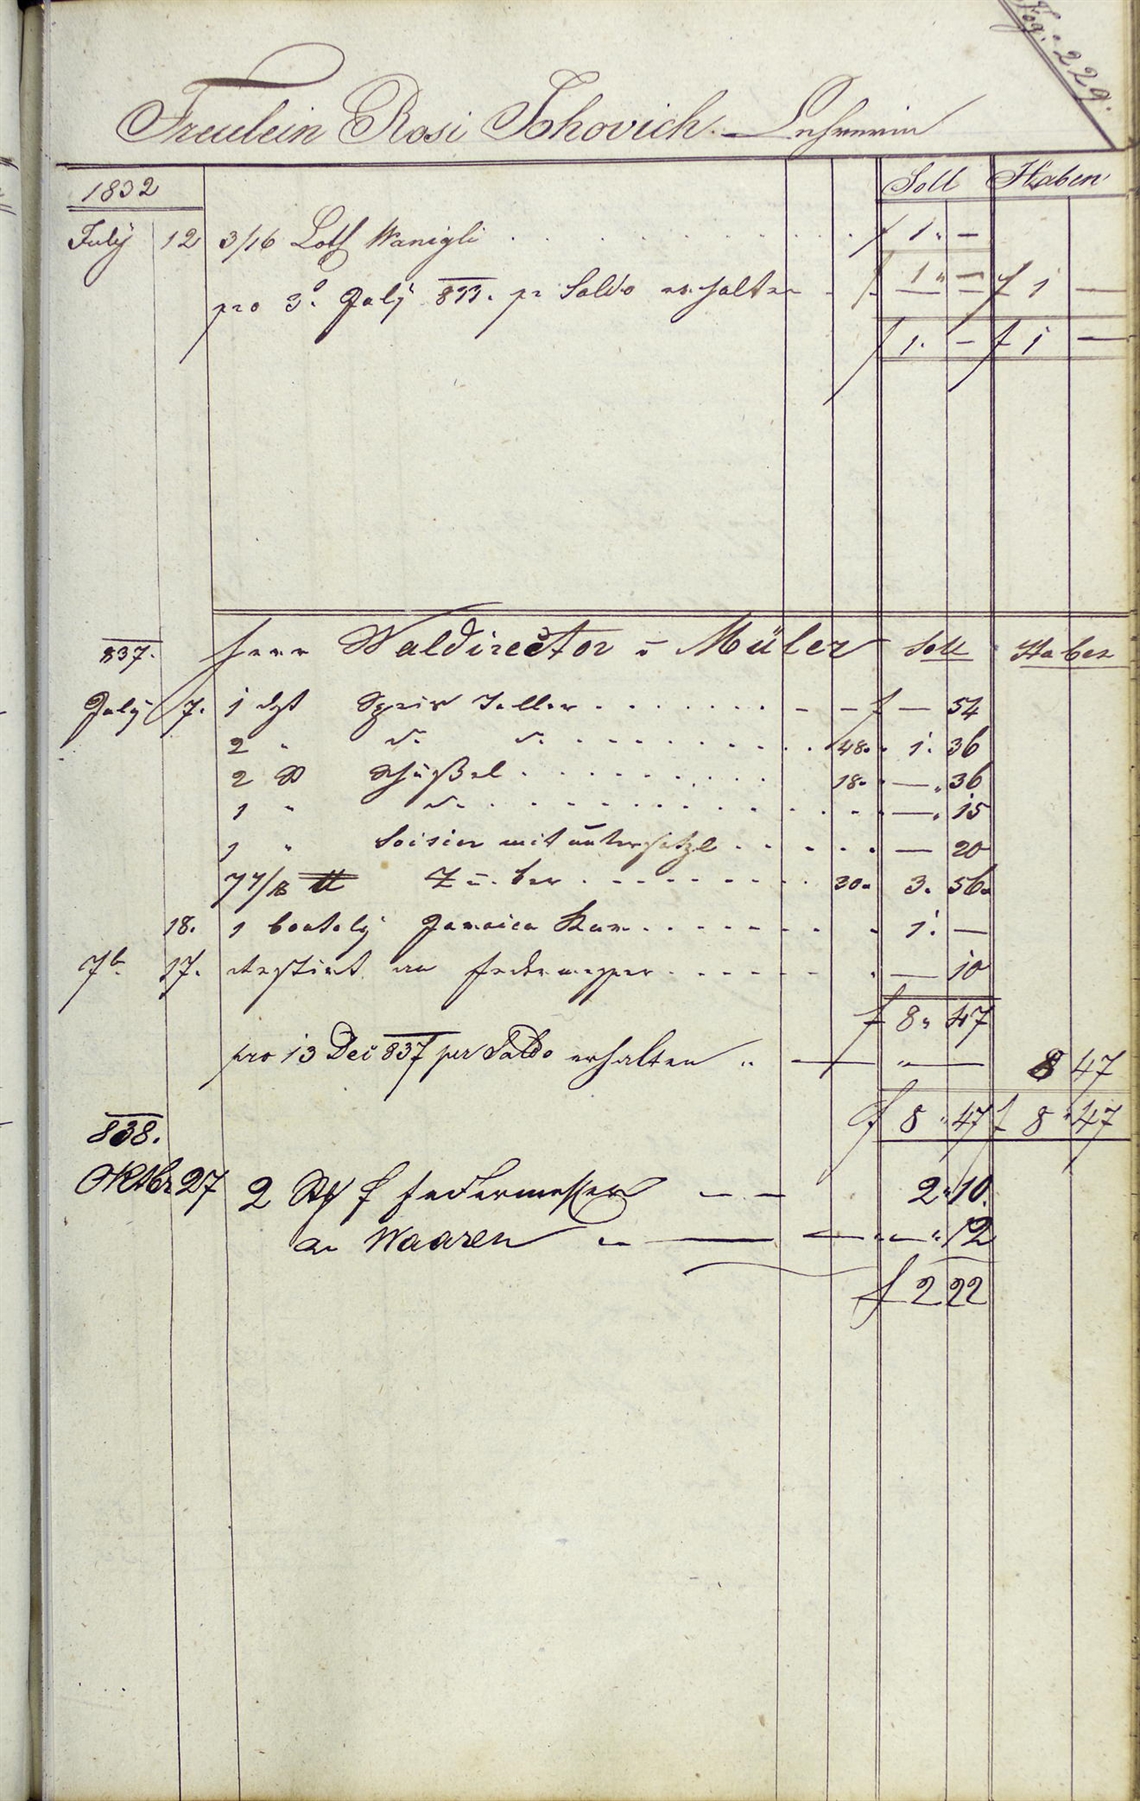 Pag: 229.
Freulein Rosi Tohovich. Lehrerin
1832 Soll Haben
July 12 3/16 Loth Wanigli . . . . f 1. —
pro 3. July 833. pr Saldo erhalten f 1 " — f 1 —
f 1. — f 1 —
837. Herr Waldirector v Müler Soll Haben
July 7. 1 dzt Speis Teller . . . . — f — 54
2 " do do . . . . 48. 1. 36
2 St Schüßel . . . . 18. — " 36
1 " do . . . . — " 15
1 " Soisier mit untersatzl . . . . — 20
7 7/8 ℔ . . . . 30 " 3. 56
18. 1 boutely Jamaica Rum . . . . 1. —
7b. 17. an Federmesser . . . . — 10
f 8 " 47
pro 13 Dec 837 per Saldo erhalten " — " — 8 47
f 8 " 47 f 8 " 47
838.
Oktbr 27 2 St f Federmesser — — 2 " 10.
an Waaren " — — — " 12
f 2 22